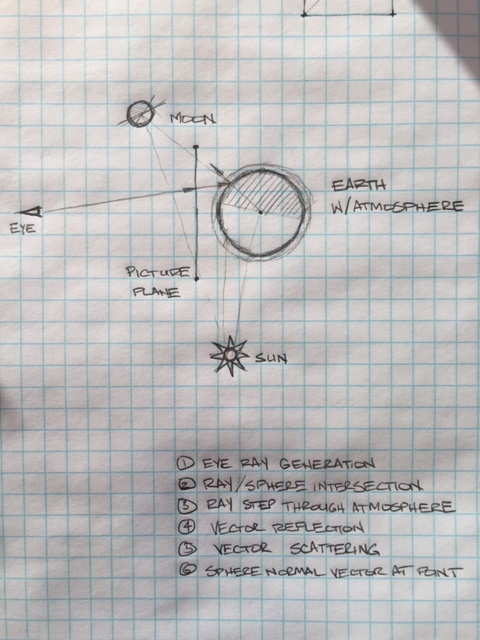 MOON
EARTH
W/ATMOSPHERE
EYE
PICTURE
PLANE
SUN
① EYE RAY GENERATION
② RAY/SPHERE INTERSECTION
③ RAY STEP THROUGH ATMOSPHERE
④ VECTOR REFLECTION
⑤ VECTOR SCATTERING
⑥ SPHERE NORMAL VECTOR AT POINT